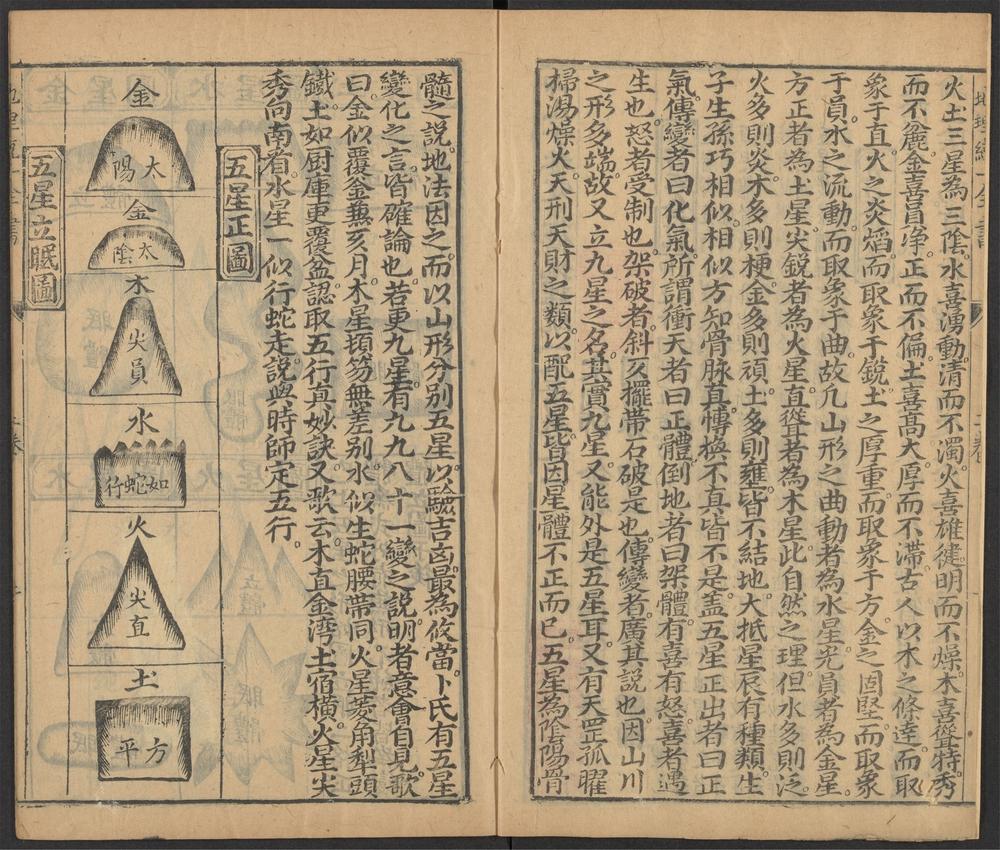 火土三星為三陰水喜湧動清而不濁火喜雄健明而不燥木喜聳特秀
而不麄金喜員净正而不偏土喜髙大厚而不滯古人以木之條達而取
象于直火之炎熖而取象于銳土之厚重而取象于方金之固堅而取象
于員水之流動而取象于曲故凢山形之曲動者為水星光員者為金星
方正者為土星尖銳者為火星直聳者為木星此自然之理但水多則泛
火多則炎木多則梗金多則頑土多則壅皆不結地大抵星辰有種類生
子生孫巧相似相似方知骨脉真博換不真皆不是盖五星正出者曰正
氣傳變者曰化氣所謂衝天者曰正體倒地者曰架體有喜有怒喜者遇
生也怒者受制也架破者斜欠擺帶石破是也傳變者廣其說也因山川
之形多端故又立九星之名其實九星又能外是五星耳又有天罡孤曜
掃湯燥火天刑天財之類以配五星皆因星體不正而已五星為陰陽骨
髓之說地法因之而以山形分别五星以驗吉凶最為攸當卜氏有五星
變化之言皆確論也若更九星有九九八十一變之說明者意會自見歌
曰金似覆釜兼亥月木星頓笏無差别水似生蛇腰帶同火星菱角犁頭
鐵土如厨庫更覆盆認取五行真妙訣又歌云木直金灣土宿橫火星尖
秀向南看水星一似行蛇走說與時師定五行
五星正圖
金
太陽
金
太陰
木
尖員
水
如蛇行
火
尖直
土
方平
五星立眠圖